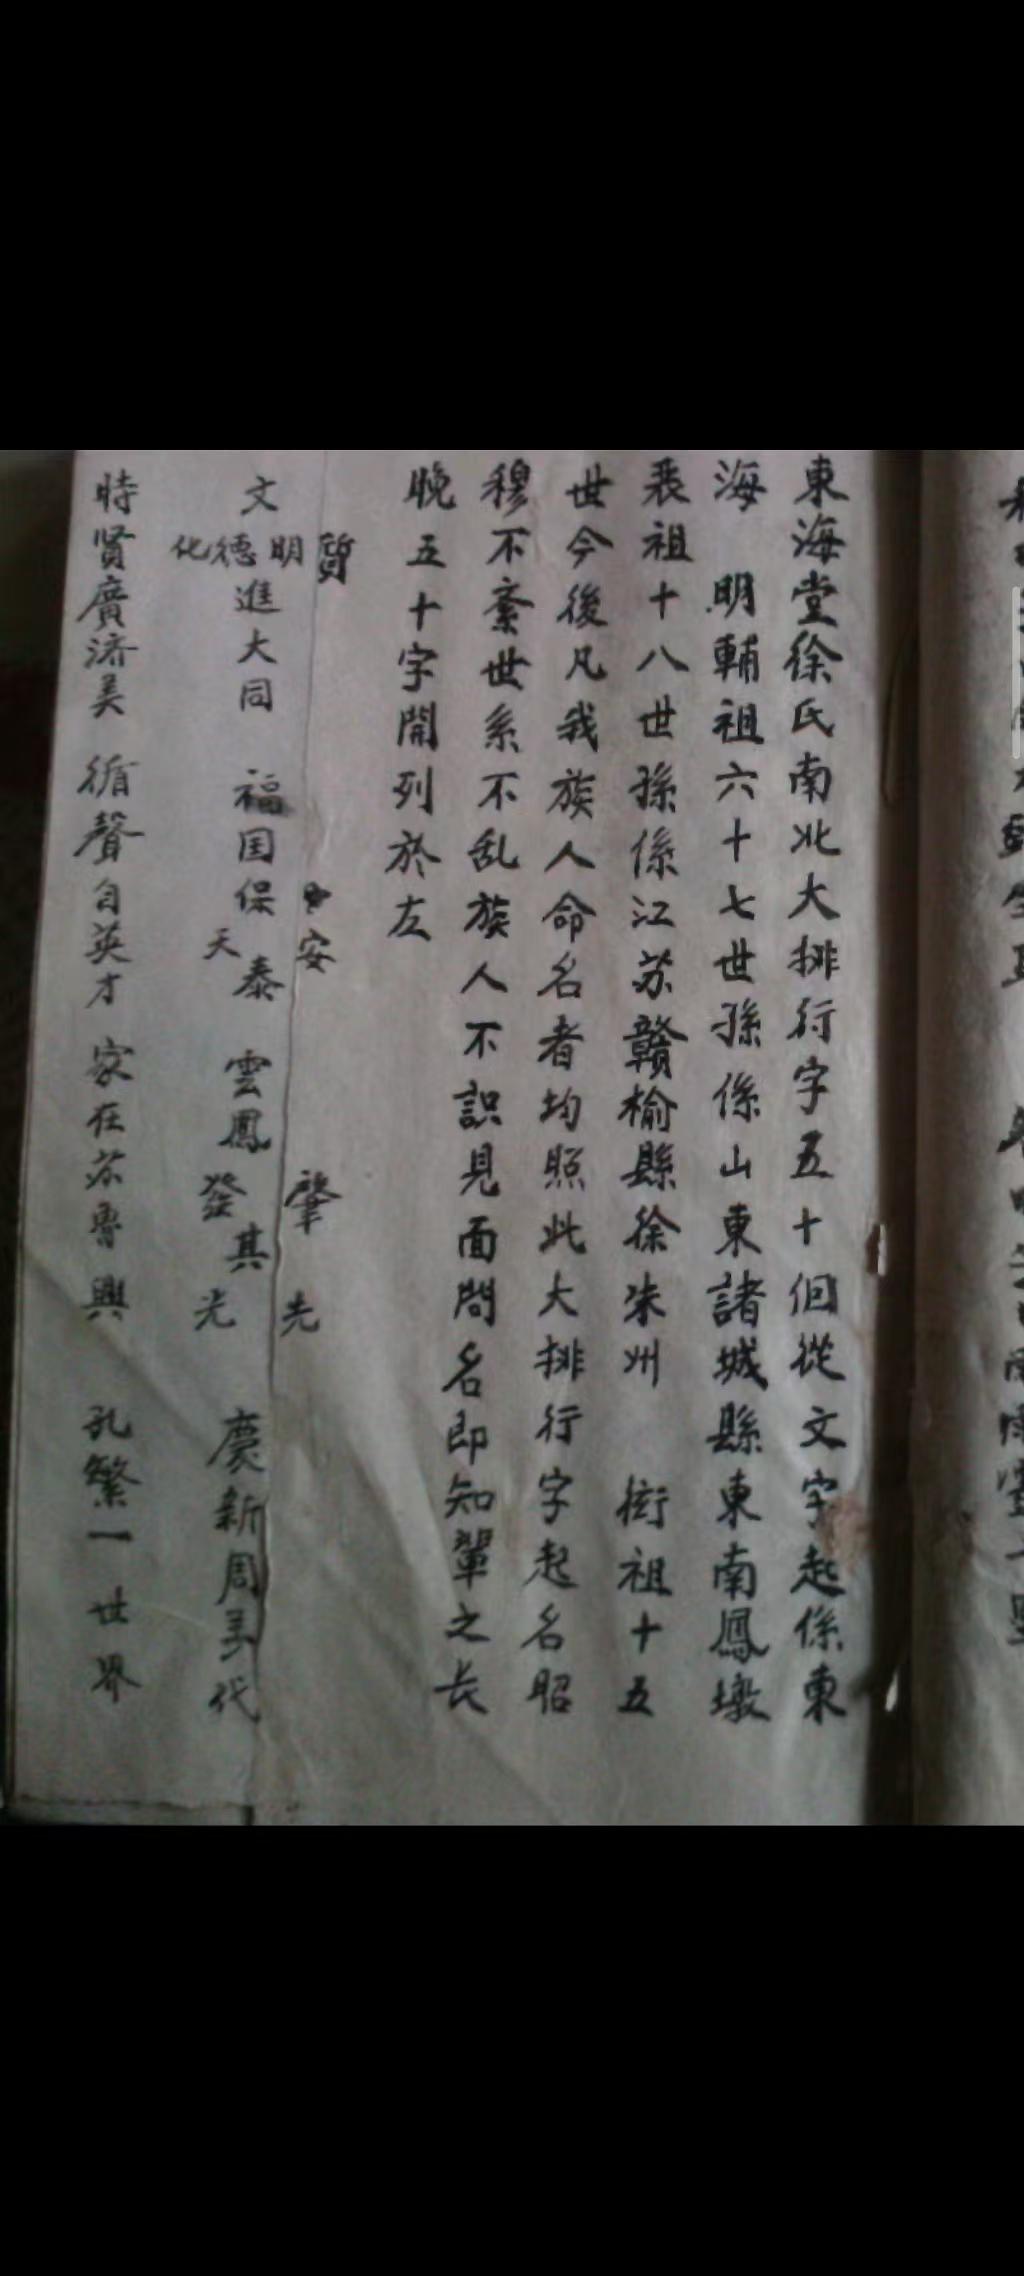 東海堂徐氏南北大排行字五十個從文字起係東
海 明輔祖六十七世孫係山東諸城縣東南鳳墩
裴祖十八世孫係江苏贛榆縣徐朱州 衒祖十五
世今後凡我族人命名者均照此大排行字起名昭
穆不紊世系不乱族人不誤見面問名即知輩之长
晚五十字開列於左
質 安 肇 先
文明德化進大同 福国保天泰 雲鳳發其光 慶新周美代
時贤廣济美 循聲自英才 家在苏魯興 孔繁一世界